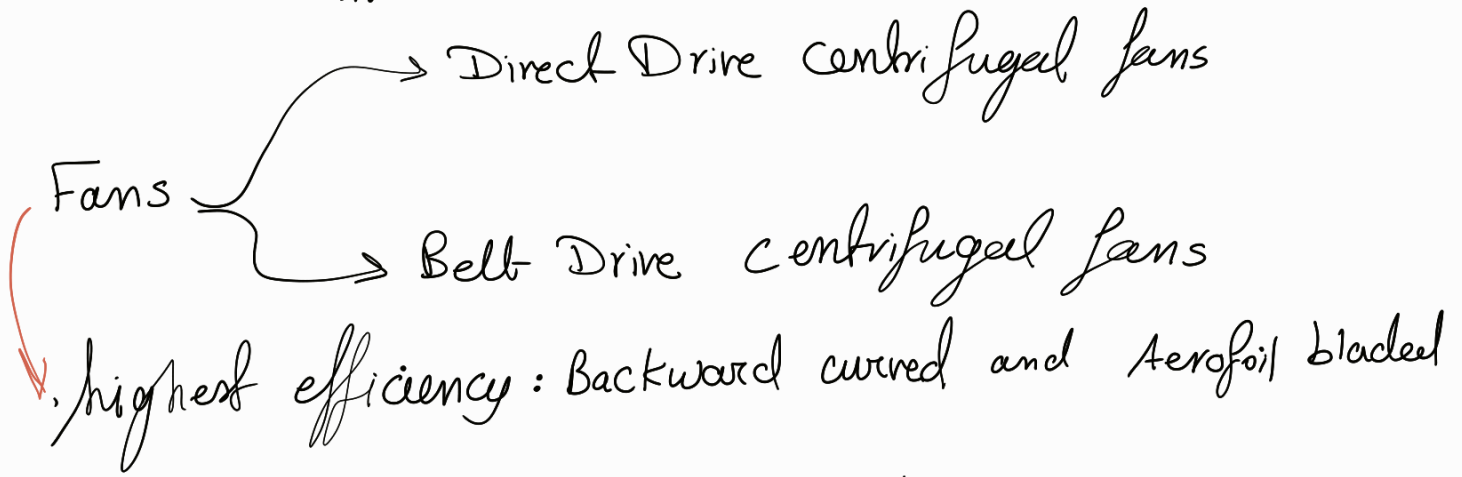 Direct Drive centrifugal fans
Fans
Belt Drive centrifugal fans
. highest efficiency : Backward curved and Aerofoil bladed